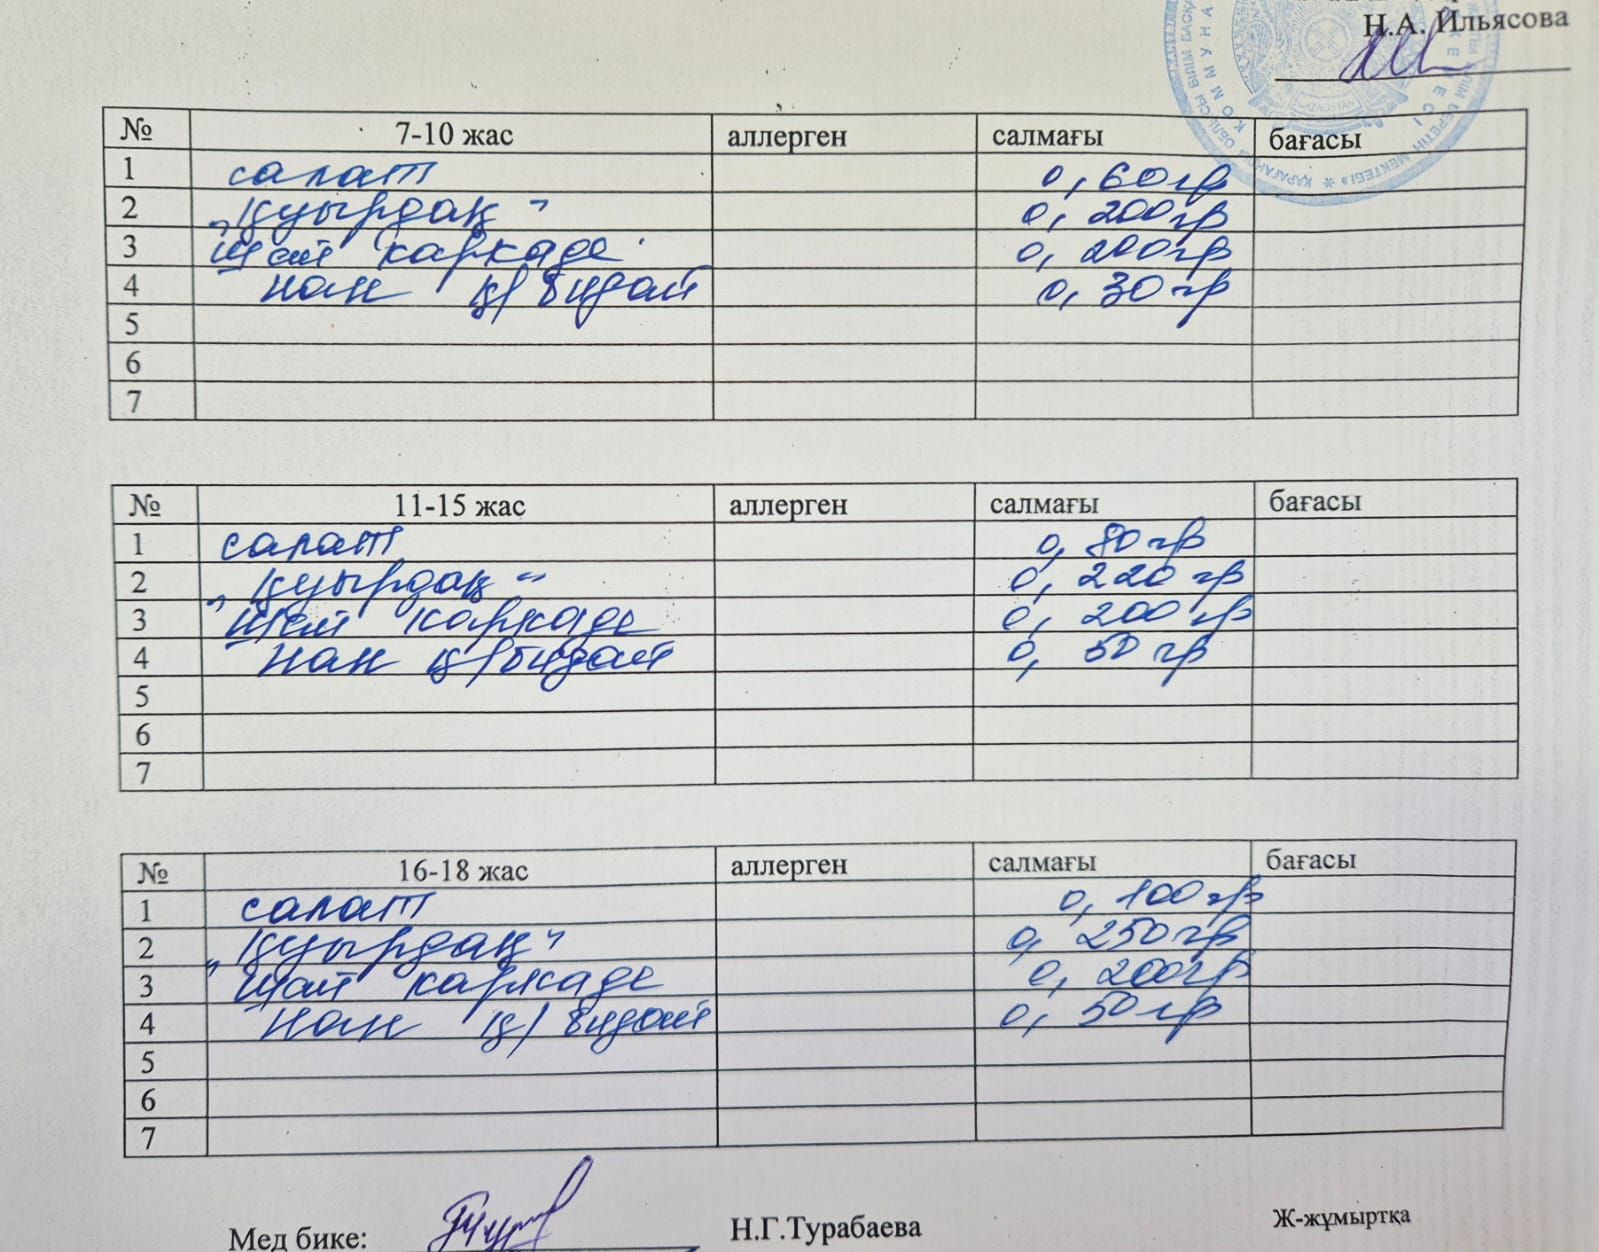 Н.А. Ильясова
№ 7-10 жас аллерген салмағы бағасы
1 салат 0,60гр
2 "Қуырдақ" 0,200гр
3 Шай каркаде 0,200гр
4 нан қ/бидай 0,30гр
5
6
7
№ 11-15 жас аллерген салмағы бағасы
1 салат 0,80гр
2 "Қуырдақ" 0,220гр
3 Шай каркаде 0,200гр
4 нан қ/бидай 0,50гр
5
6
7
№ 16-18 жас аллерген салмағы бағасы
1 салат 0,100гр
2 "Қуырдақ" 0,250гр
3 Шай каркаде 0,200гр
4 нан қ/бидай 0,50гр
5
6
7
Мед бике: Н.Г.Турабаева Ж-жұмыртқа